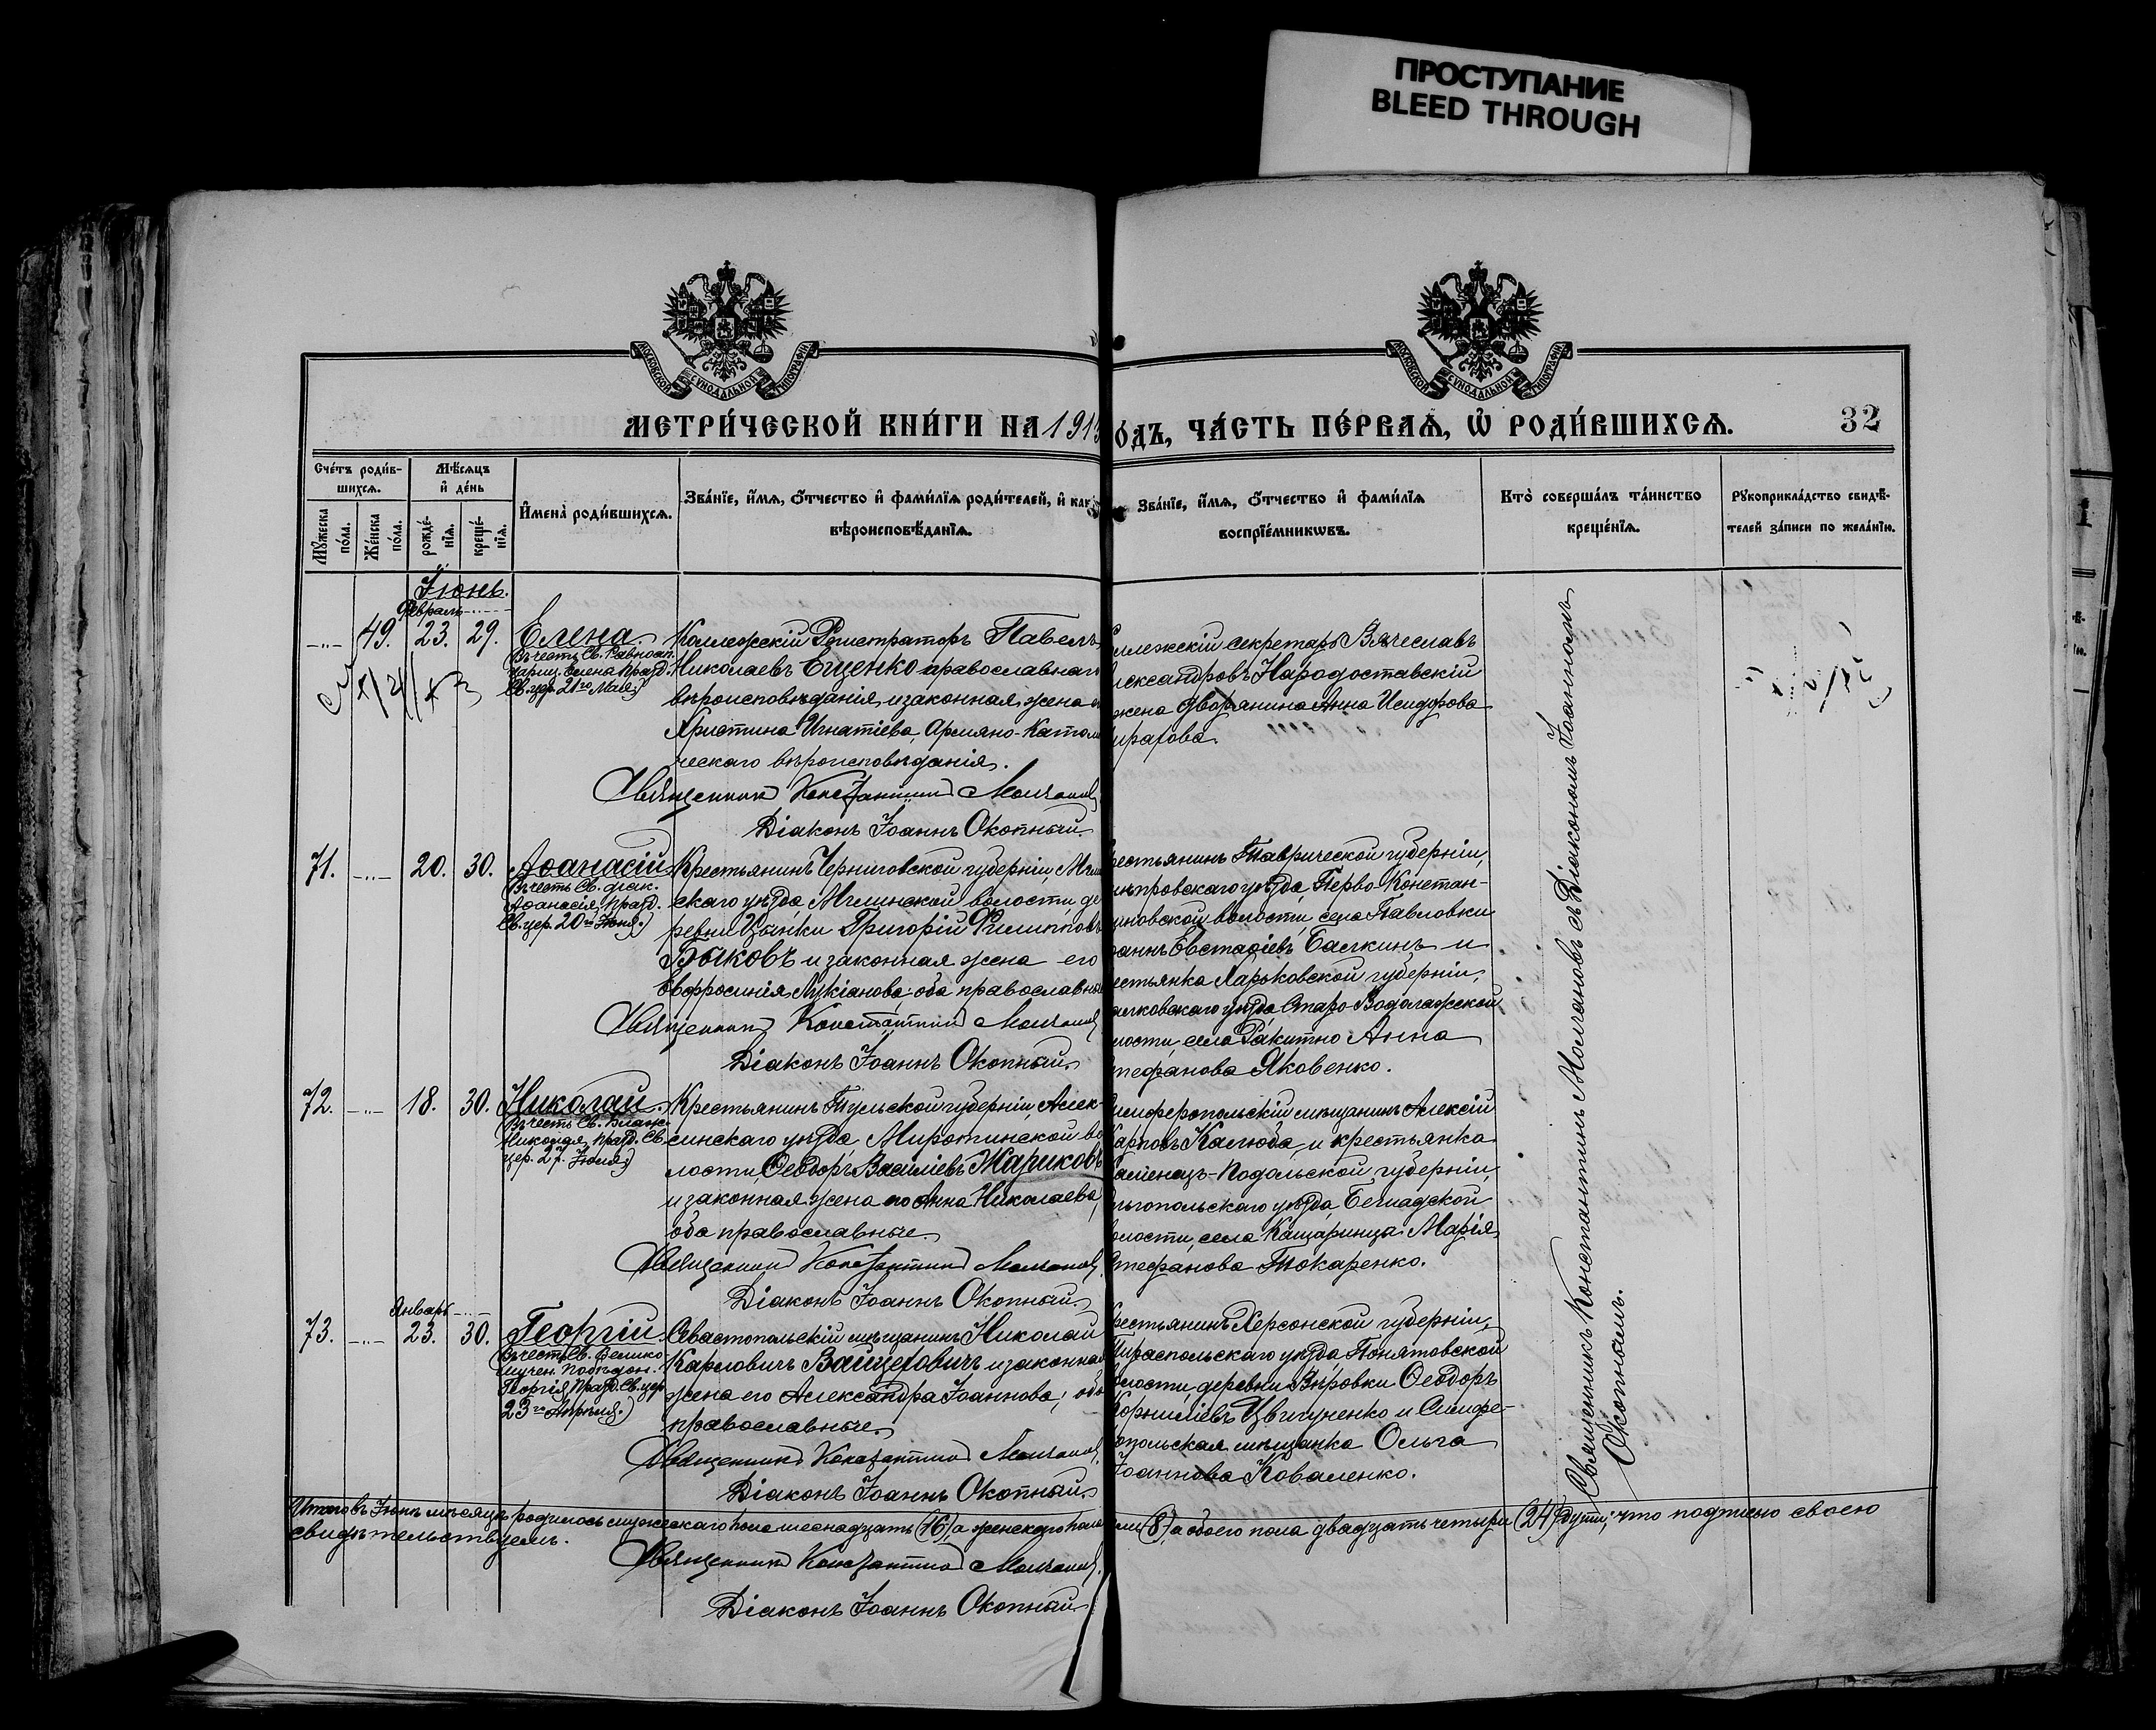 ПРОСТУПАНИЕ
BLEED THROUGH
МОСКОВСКОЙ СѴНОДАЛЬНОЙ ТИПОГРАФІИ
МОСКОВСКОЙ СѴНОДАЛЬНОЙ ТИПОГРАФІИ
МЕТРИ́ЧЕСКОЙ КНИ́ГИ НА 191
О́ДЪ, ЧА́СТЬ ПЕ́РВАѦ, Ѽ РОДИ́ВШИХСѦ.
32
Сче́тъ роди́в-
шихсѧ.
Мѣ́сѧцъ
и҆ де́нь
Мꙋ́жеска
по́ла.
Же́нска
по́ла.
рожде́-
нїѧ.
креще́-
нїѧ.
И҆мена̀ роди́вшихсѧ.
Зва́нїе, и҆́мѧ, ѻ҆́тчество и҆ фами́лїѧ роди́телей, и҆ как
вѣроисповѣ́данїѧ.
Зва́нїе, и҆́мѧ, ѻ҆́тчество и҆ фами́лїѧ
воспрїе́мникѡвъ.
Кто̀ соверша́лъ та́инство
креще́нїѧ.
Рꙋкоприкла́дство свидѣ́-
телей за́писи по жела́нїю.
Іюнь.
Февраль
49. 23. 29. Елена.
Въ честь Св. Равноап.
Цариц. Елена празд.
Св. цер. 21го Мая.)
Коллежскій Регистраторъ Павелъ
Николаевъ Ещенко православнаго
вѣроисповѣданія, и законная жена
Христина Игнатіева, Армяно-Катол
ческаго вѣроисповѣданія.
Священникъ Константинъ Молчановъ
Діаконъ Іоаннъ Окопный.
ллежскій секретарь Вячеславъ
лександровъ Народоставскій
жена дворянина Анна Исидорова
71. 20. 30. Аѳанасій
Въ честь Св. діак.
Аѳанасія, празд.
Св. цер. 20го Іюня.)
Крестьянинъ Черниговской губерніи, Мгли
скаго уѣзда Мглинской волости, де
ревни Цынки Григорій Филипповъ
Быковъ и законная жена его
Евфросинія Лукіанова, оба православные
Священникъ Константинъ Молчановъ
Діаконъ Іоаннъ Окопный.
рестьянинъ Таврической губерніи,
нѣпровскаго уѣзда, Перво-Констан-
тиновской волости, села Павловки
оаннъ Евстаѳіевъ Балкинъ и
естьянка Харьковской губерніи,
алковскаго уѣзда, Старо-Водолажской
лости, села Ракитно Анна
тефанова Яковенко.
72. 18. 30. Николай.
Въ честь Св. Блаж.
Николая, празд. Св.
цер. 27. Іюля.)
Крестьянинъ Тульской губерніи, Алек-
синскаго уѣзда Миротинской во
лости, Ѳеодоръ Василіевъ Жариковъ
и законная жена его Анна Николаева,
оба православные.
Священникъ Константинъ Молчановъ
Діаконъ Іоаннъ Окопный.
имферопольскій мѣщанинъ Алексій
Карповъ Калюба, и крестьянка
Каменецъ-Подольской губерніи,
льгопольскаго уѣзда, Бершадской
олости, села Кашаринца Марія
Стефанова Токаренко.
Январь
73. 23. 30. Георгій
(Въ честь Св. Велико-
мучен. Побѣдон.
Георгія, празд. Св. цер
23го Апрѣля.)
Севастопольскій мѣщанинъ Николай
Карловичъ Вайцеховичъ и законная
жена его Александра Іоаннова, оба
православные.
Священникъ Константинъ Молчановъ
Діаконъ Іоаннъ Окопный.
рестьянинъ Херсонской губерніи,
Тираспольскаго уѣзда, Понятовской
олости, деревни Выровки Ѳеодоръ
Корниліевъ Цвигуненко и Симфе-
опольская мѣщанка Ольга
Іоаннова Коваленко.
Священникъ Константинъ Молчановъ съ Діакономъ Іоанномъ
Окопнымъ.
Итого въ Іюнѣ мѣсяцѣ родилось мужескаго пола шеснадцать (16), а женскаго пола
емь (8), а обоего пола двадцать четыре (24) души; что подписью своею
свидѣтельствуемъ.
Священникъ Константинъ Молчановъ.
Діаконъ Іоаннъ Окопный